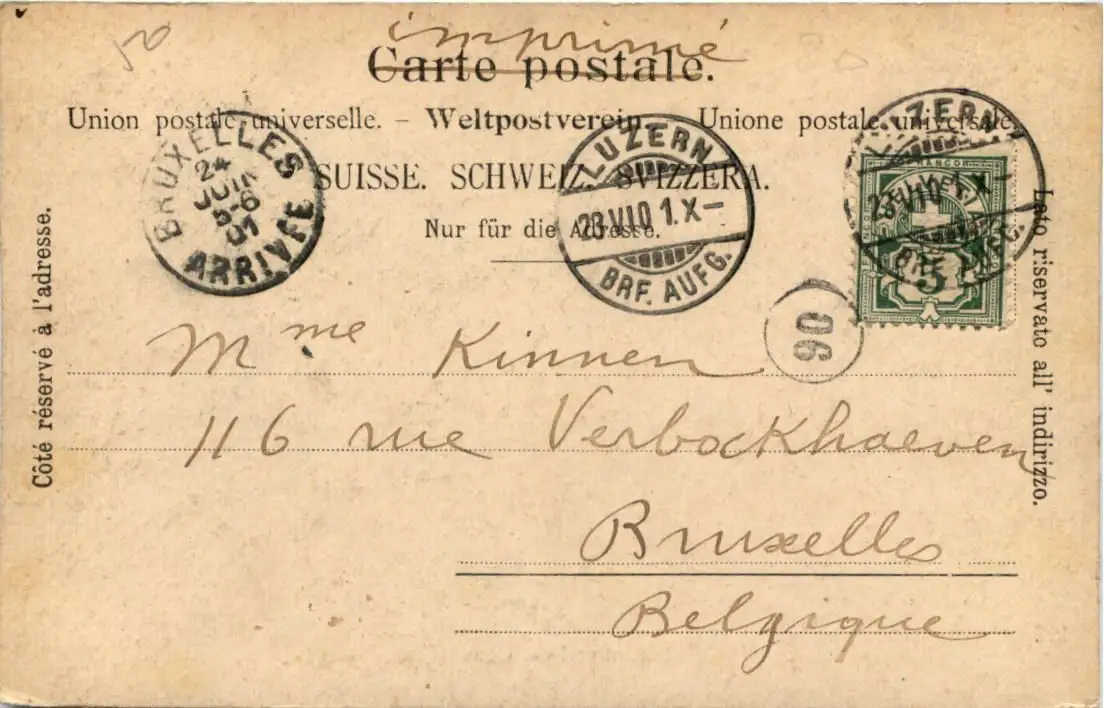 50
imprimé
Carte postale.
Union postale universelle. – Weltpostverein. – Unione postale universale.
SUISSE. SCHWEIZ. SVIZZERA.
Nur für die Adresse.
Côté réservé à l'adresse.
Lato riservato all' indirizzo.
BRUXELLES
24
JUIN
01
ARRIVÉE
LUZERN
23.VI.01.X–
BRF. AUFG.
LUZERN
23.VI.01.X–
BRF. AUFG.
FRANCO
HELVETIA
5
90
Mme Kinnen
116 rue Verbockhaeven
Bruxelles
Belgique